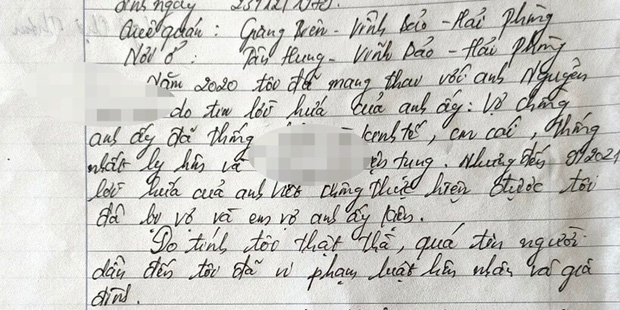 ngày 25/12/
Quê quán: Giang Biên - Vĩnh Bảo - Hải Phòng
Nơi ở: Tân Hưng - Vĩnh Bảo - Hải Phòng
Năm 2020 tôi đã mang thai với anh Nguyễn
do tin lời hứa của anh ấy: Vợ chồng
anh ấy đã thống kinh tế, con cái, thống
nhất ly hôn và tụng. Nhưng đến 2021
lời hứa của anh không thực hiện được tôi
đã bị vợ và em vợ anh ấy kiện.
Do tính tôi thật thà, quá tin người
dẫn đến tôi đã vi phạm luật hôn nhân và gia
đình.